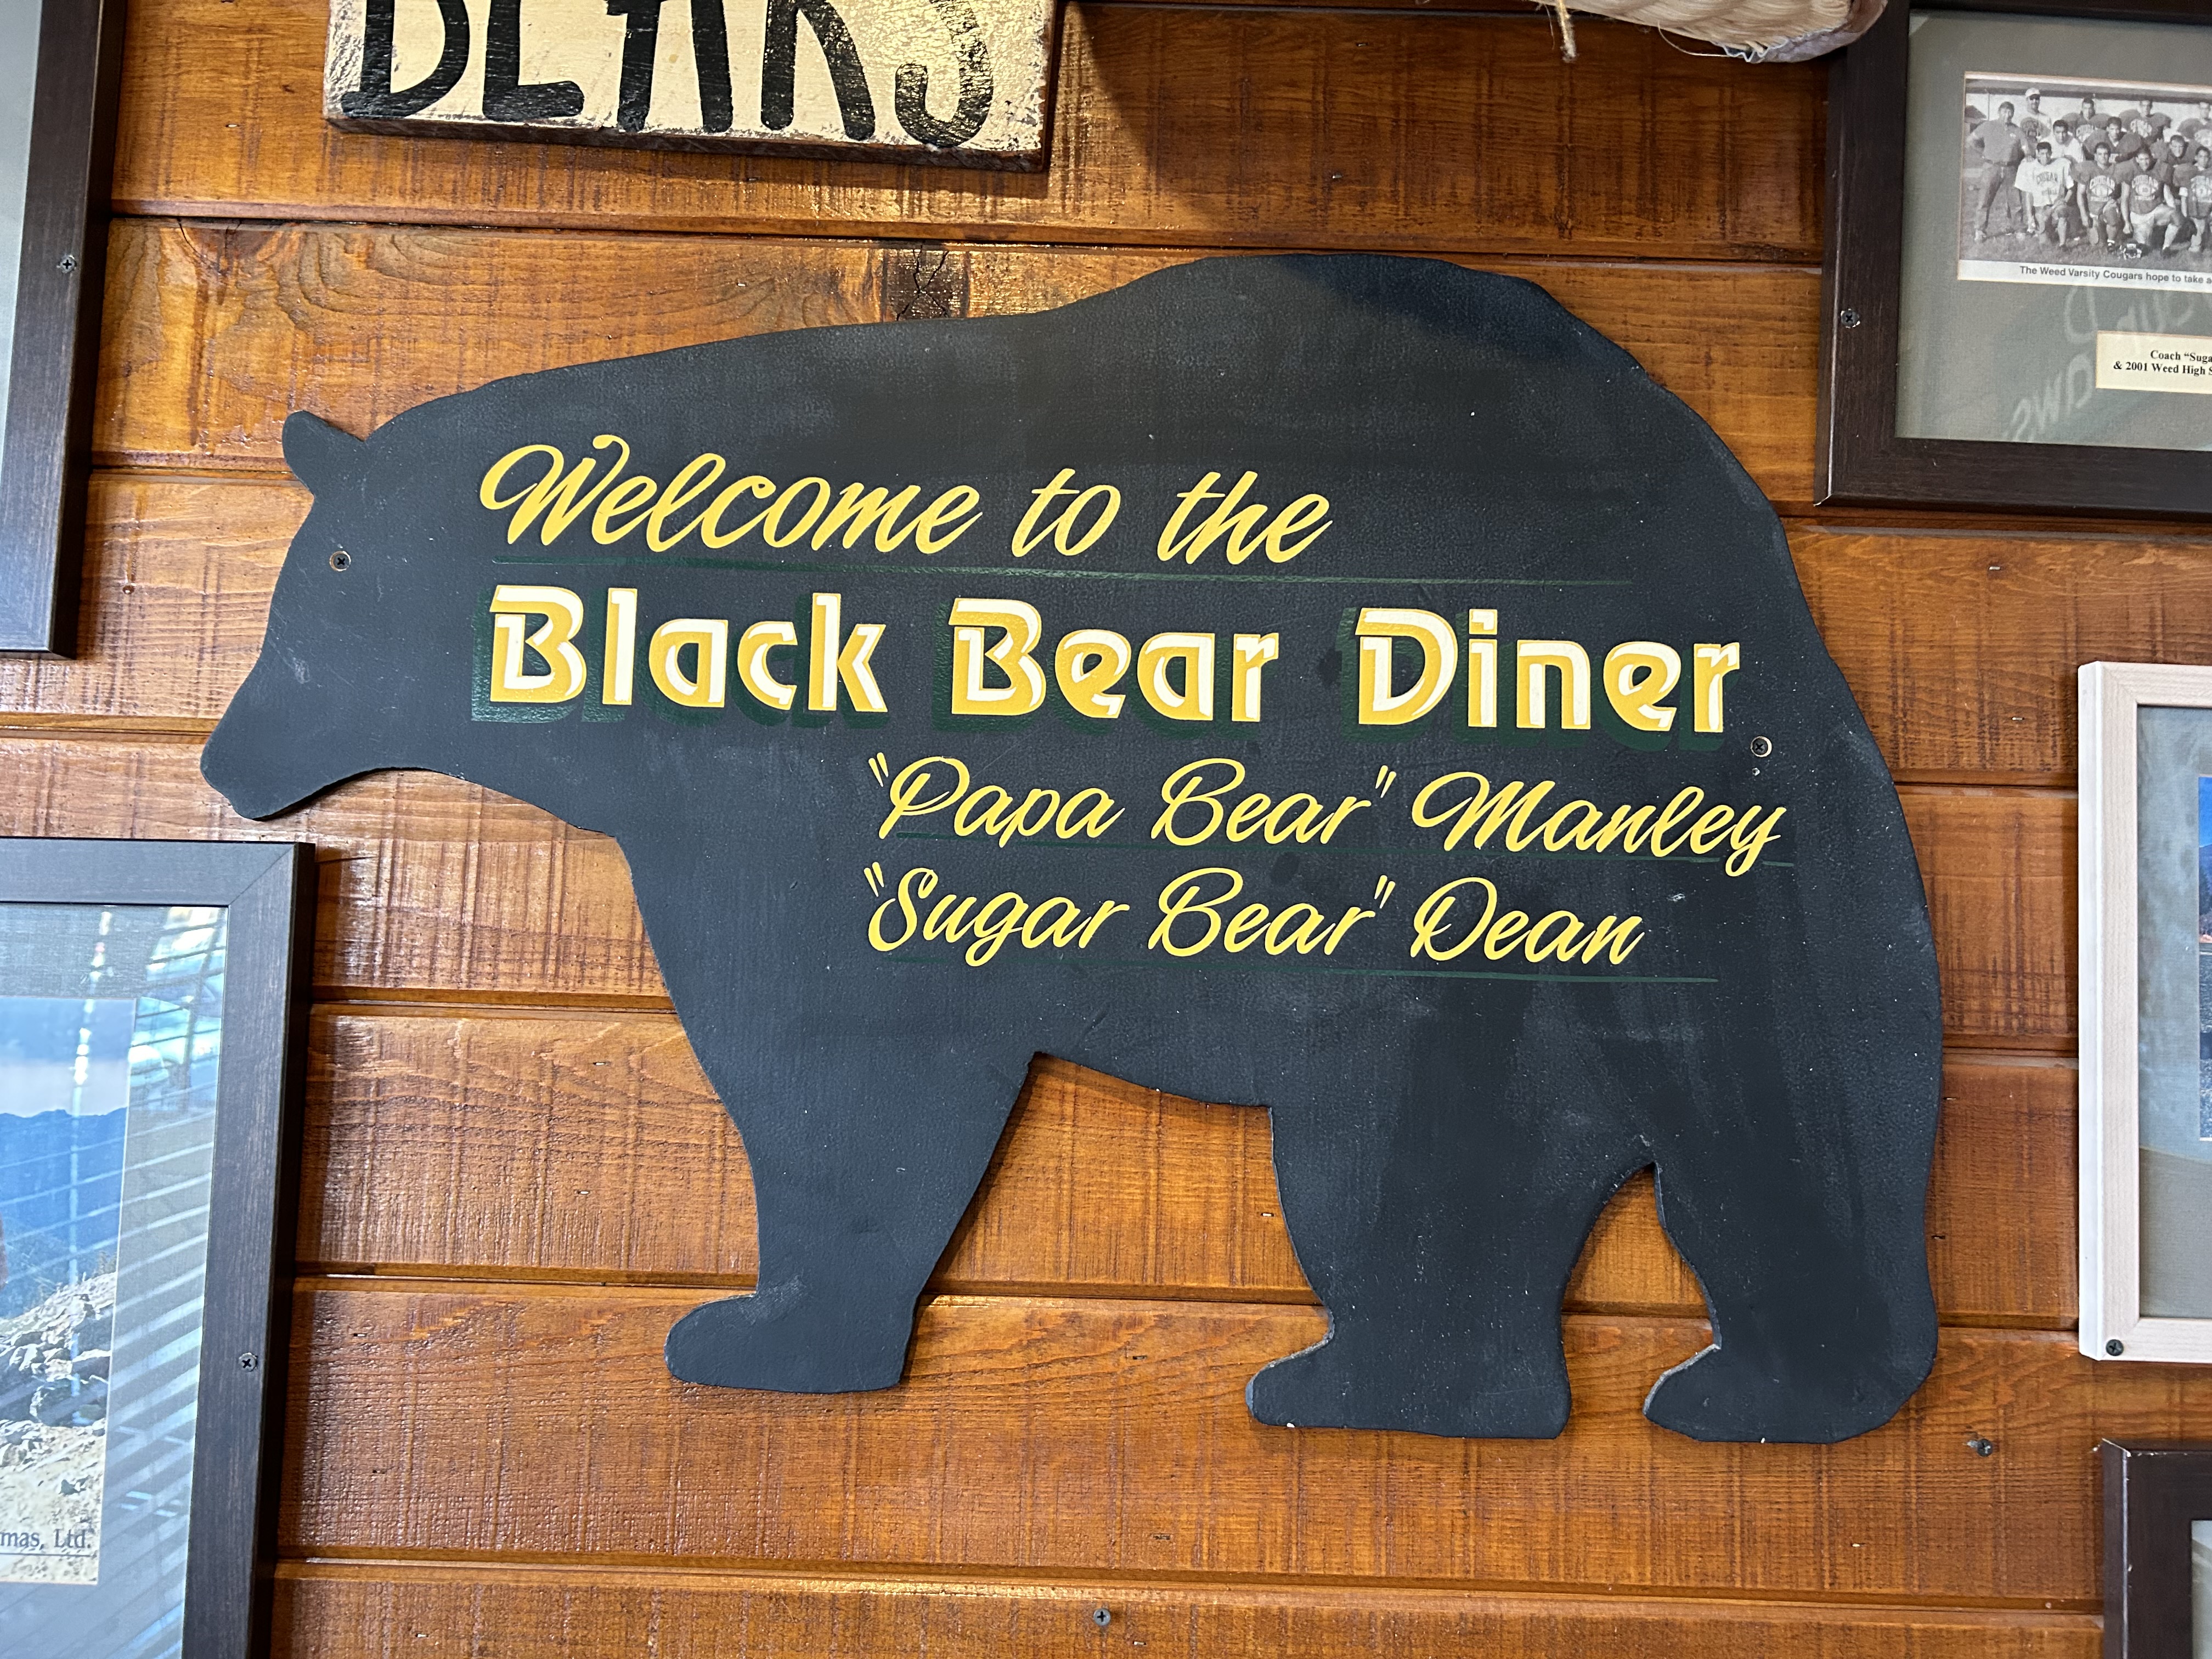 BEARS
The Weed Varsity Cougars hope to take
Coach "Suga
& 2001 Weed High S
Welcome to the
Black Bear Diner
"Papa Bear" Manley
"Sugar Bear" Dean
mas, Ltd.